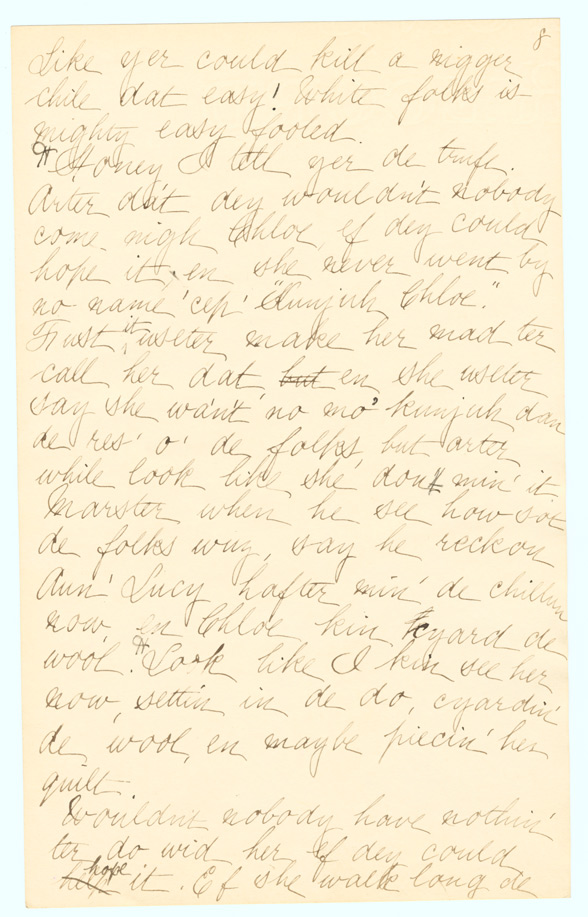 8
Like yer could kill a nigger
chile dat easy! White folks is
mighty easy fooled.
Honey I tell yer de trufe.
Arter dat dey wouldn't nobody
come nigh Chloe, ef dey could
hope it, en she never went by
no name 'cep' "Kunjuh Chloe."
Fust it useter make her mad ter
call her dat but en she useter
say she wa'n't no mo' kunjuh dan
de res' o' de folks, but arter
while look like she don't min' it
Marster when he see how sot
de folks wuz, say he reckon
Aun' Lucy hafter min' de chillun
now, en Chloe kin cyard de
wool. Look like I kin see her
now, settin in de do, cyardin'
de wool, en maybe piecin' her
quilt.
Wouldn't nobody have nothin'
ter do wid her ef dey could
hope it. Ef she walk long de